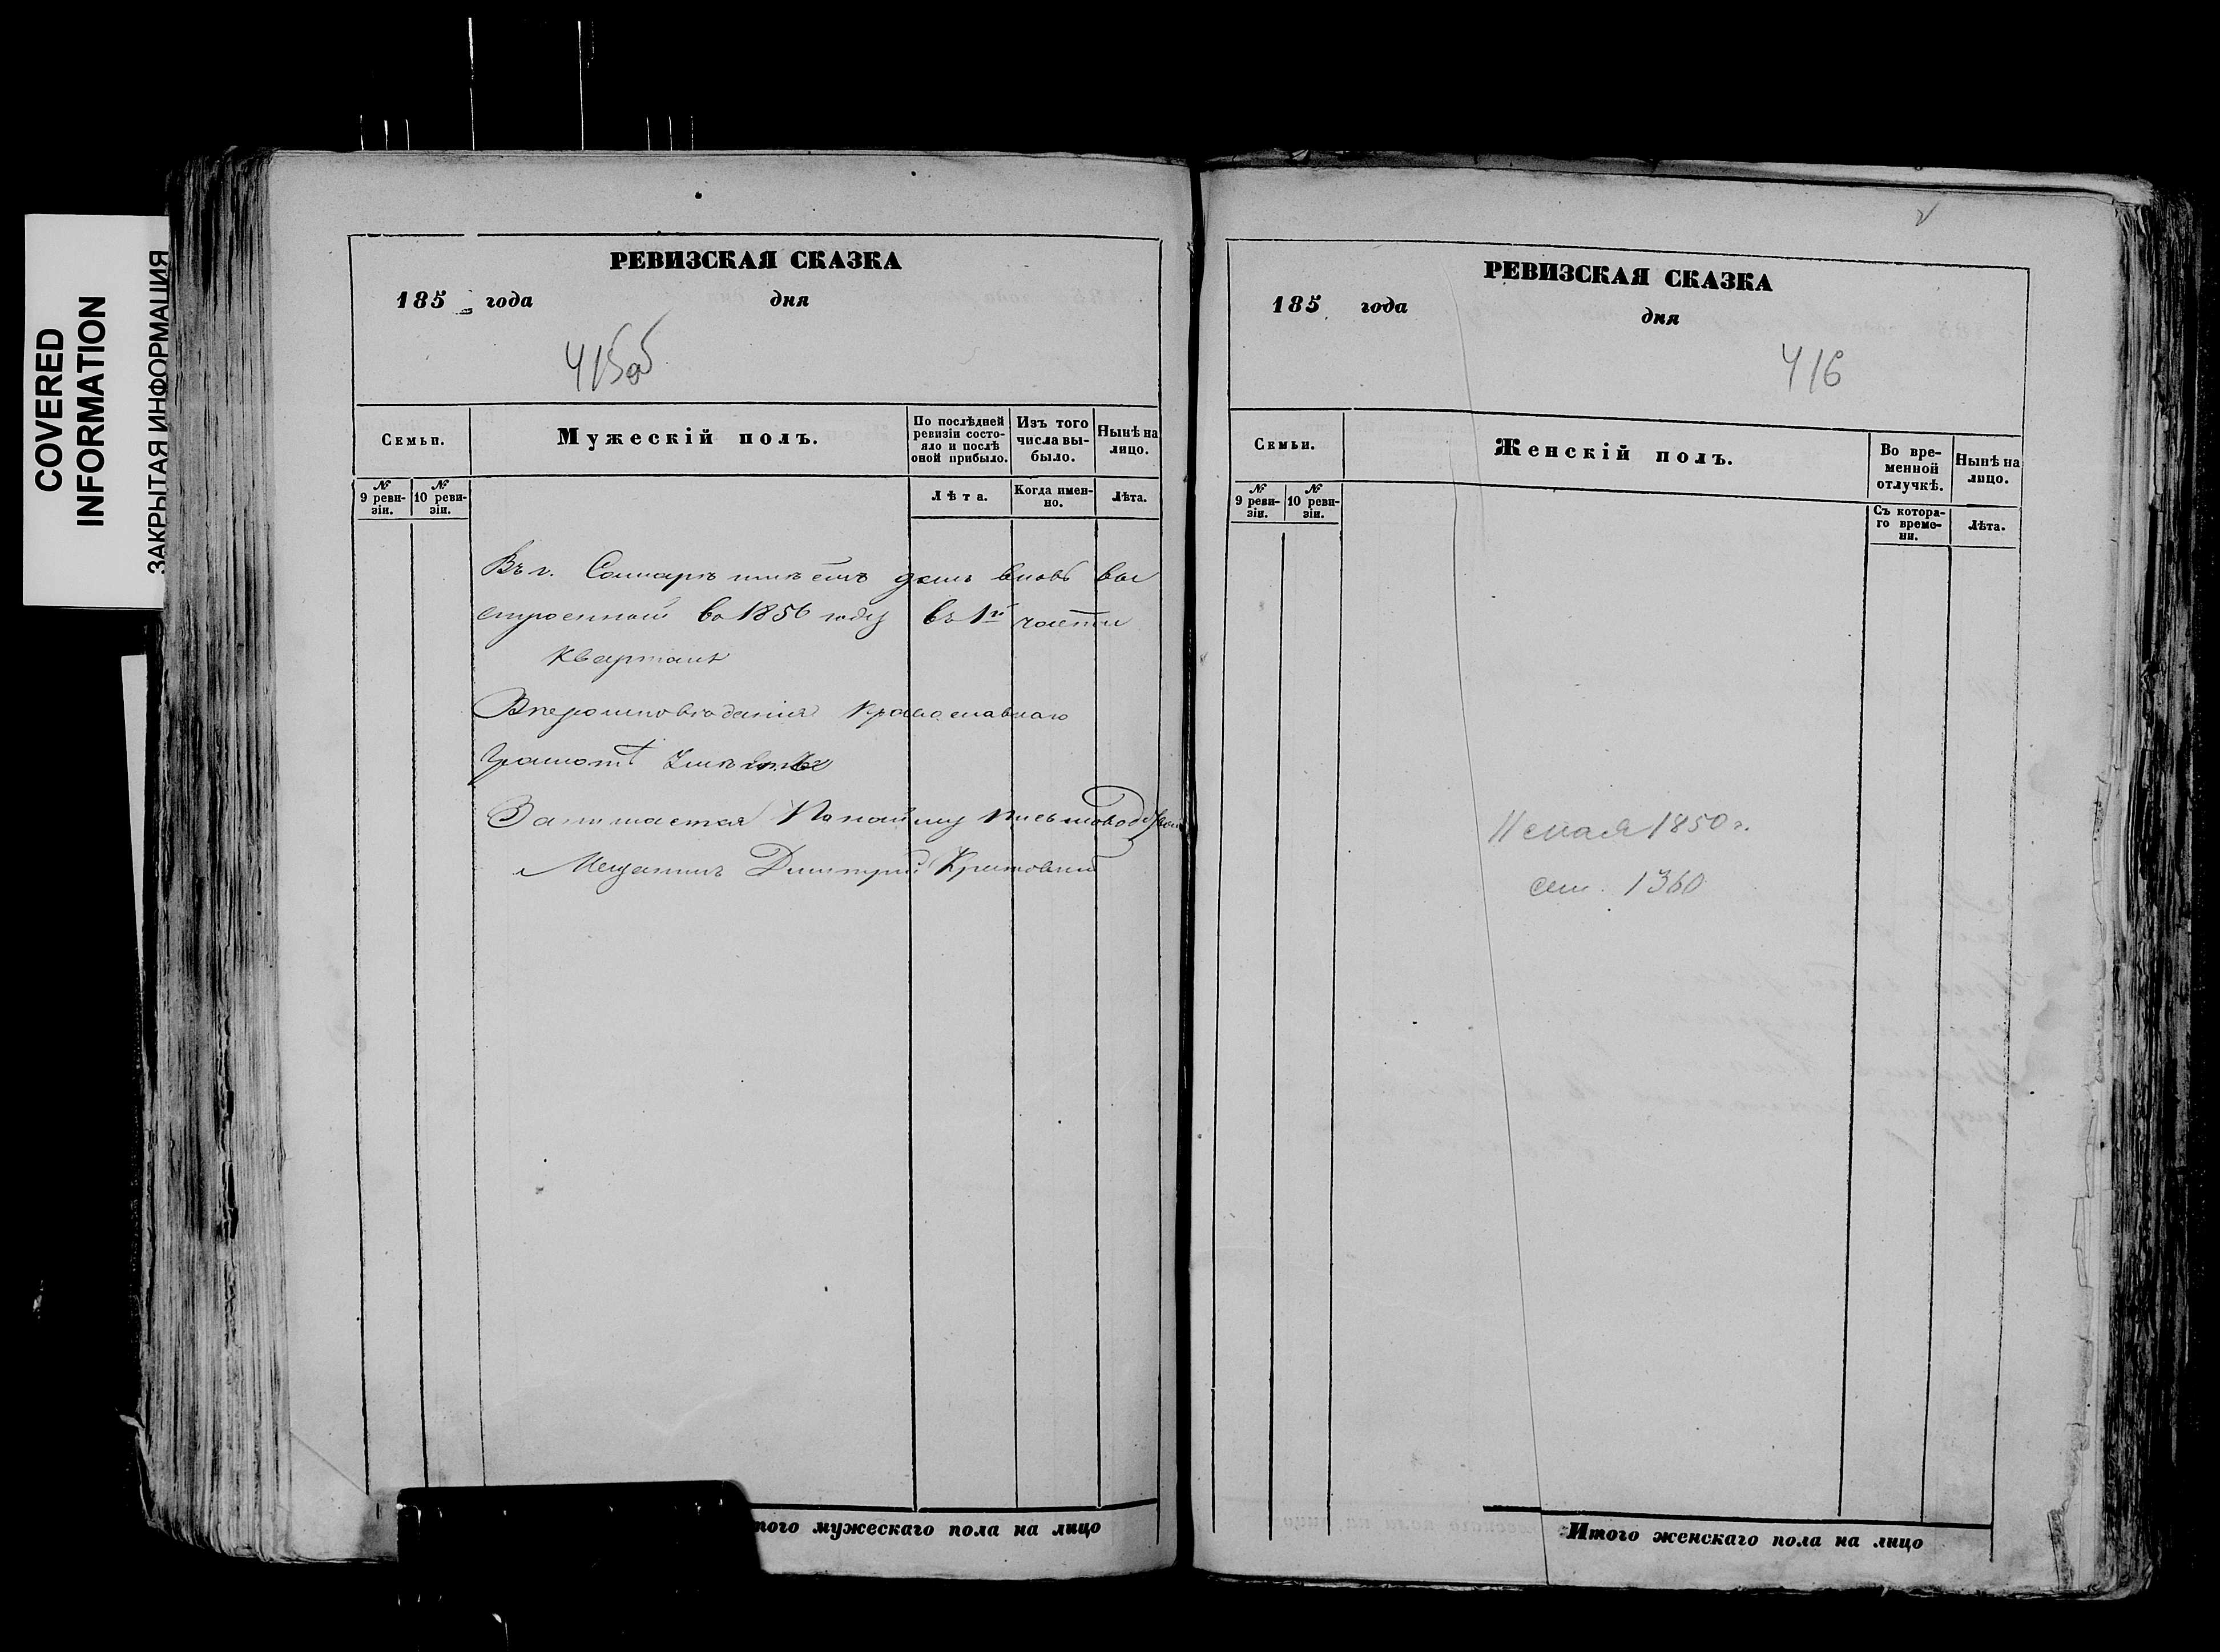 COVERED
INFORMATION
ЗАКРЫТАЯ ИНФОРМАЦИЯ
РЕВИЗСКАЯ СКАЗКА
185 года дня
415об
Семьи.
Мужескій полъ.
По послѣдней ревизіи состояло и послѣ оной прибыло.
Изъ того числа выбыло.
Нынѣ на лицо.
№ 9 ревизіи.
№ 10 ревизіи.
Лѣта.
Когда именно.
Лѣта.
Въ г. Самарѣ имѣетъ домъ вновь вы
строенный въ 1856 году въ 1й части
квартала
Вѣроисповѣданія православнаго
Грамотѣ
Занимается По найму письмоводством
Мещанинъ Дмитрій
того мужескаго пола на лицо
РЕВИЗСКАЯ СКАЗКА
185 года
дня
416
Семьи.
Женскій полъ.
Во временной отлучкѣ.
Нынѣ на лицо.
№ 9 ревизіи.
№ 10 ревизіи.
Съ котораго времени.
Лѣта.
11 мая 1850 г.
1360
Итого женскаго пола на лицо